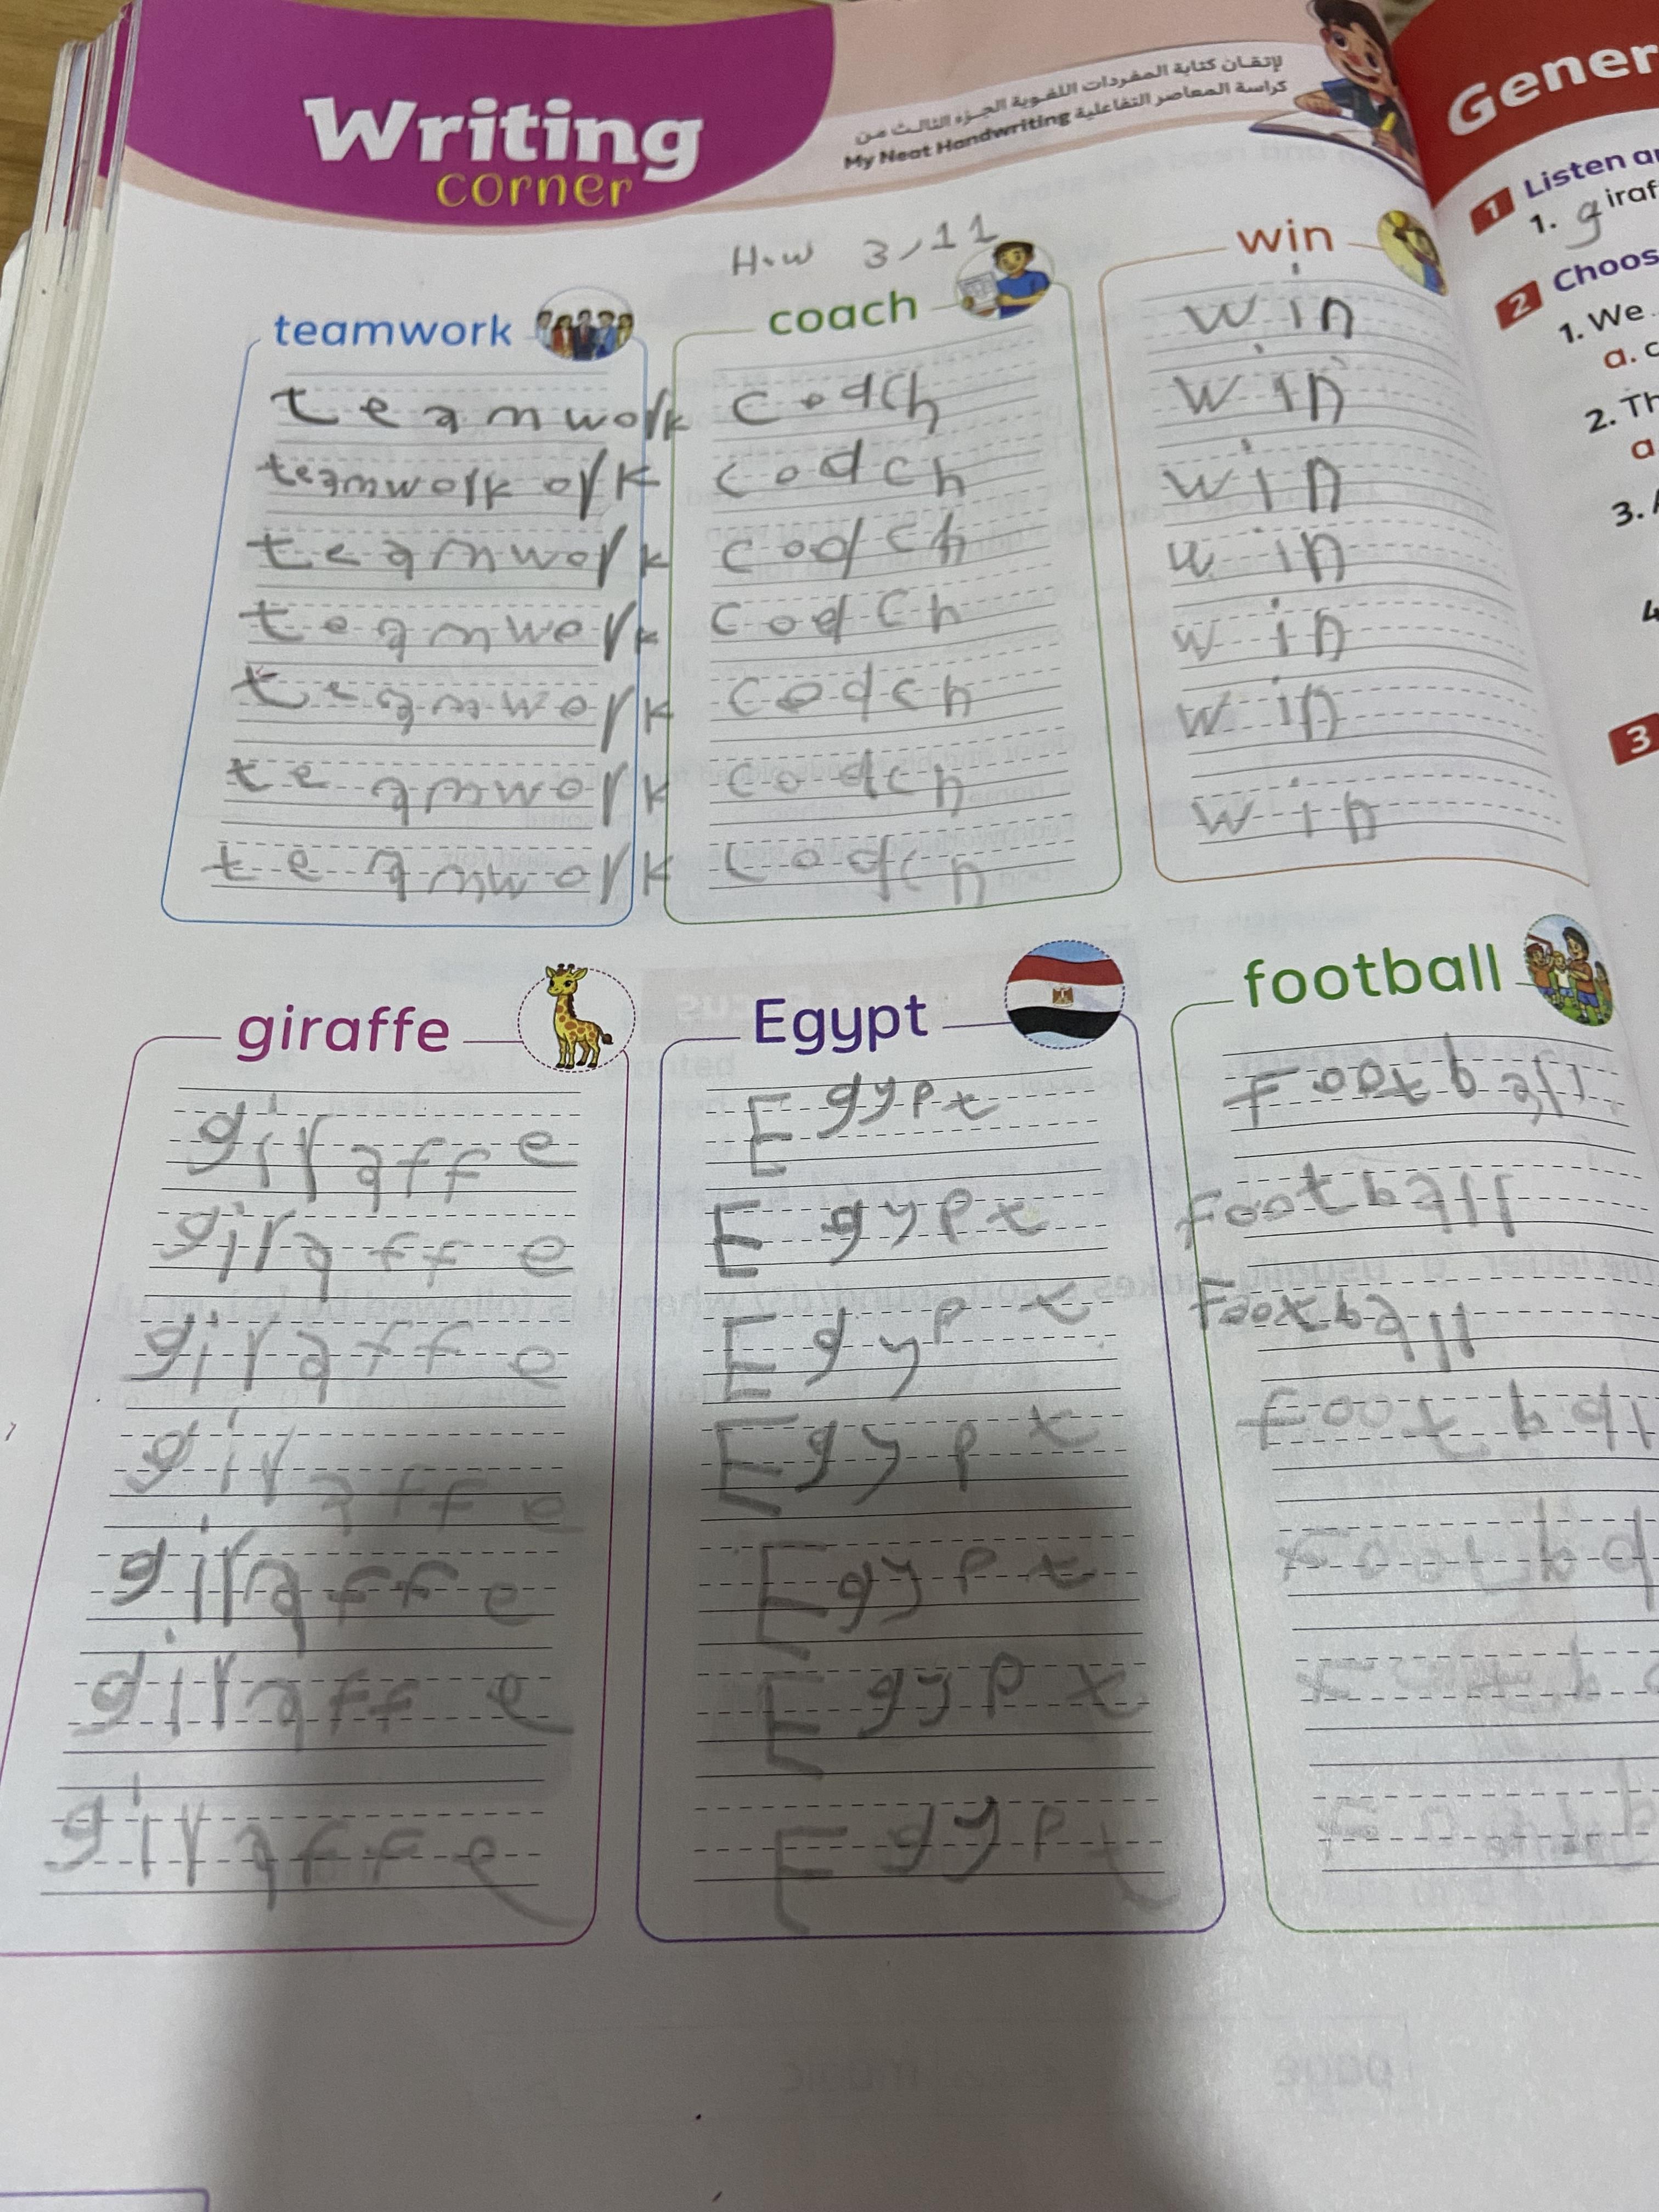 Writing
corner
لإتقان كتابة المفردات اللغوية الجزء الثالث من
كراسة المعاصر التفاعلية My Neat Handwriting
H.w 3/11
teamwork
teamwork
teamwork ork
teamwork
teamwork
teamwork
teamwork
teamwork
coach
coach
coach
coach
coach
coach
coach
coach
win
win
win
win
win
win
win
win
giraffe
giraffe
giraffe
giraffe
giraffe
giraffe
giraffe
giraffe
Egypt
Egypt
Egypt
Egypt
Egypt
Egypt
Egypt
Egypt
football
Football
Football
Football
Gener
1 Listen
1. giraf
2 Choos
1. We
a. c
2. Th
a
3.
4
3